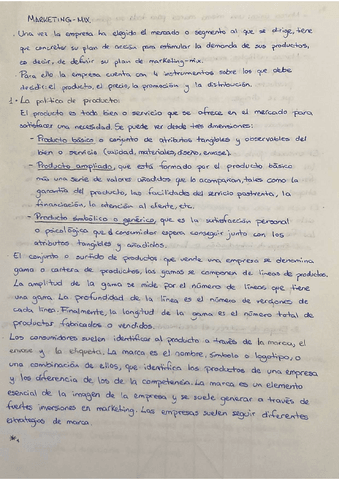 MARKETING-MIX
. Una vez la empresa ha elegido el mercado o segmento al que se dirige, tiene
que concretar su plan de acción para estimular la demanda de sus productos,
es decir, de definir su plan de marketing-mix.
Para ello la empresa cuenta con 4 instrumentos sobre los que debe
decidir: el producto, el precio, la promoción y la distribución.
1. La política de producto:
El producto es todo bien o servicio que se ofrece en el mercado para
satisfacer una necesidad. Se puede ver desde tres dimensiones:
- Producto básico o conjunto de atributos tangibles y observables del
bien o servicio (calidad, materiales, diseño, envase).
- Producto ampliado, que está formado por el producto básico
más una serie de valores añadidos que lo acompañan, tales como la
garantía del producto, las facilidades del servicio postventa, la
financiación, la atención al cliente, etc.
- Producto simbólico o genérico, que es la satisfacción personal
o psicológica que el consumidor espera conseguir junto con los
atributos tangibles y añadidos.
El conjunto o surtido de productos que vende una empresa se denomina
gama o cartera de productos, las gamas se componen de líneas de producto.
La amplitud de la gama se mide por el número de líneas que tiene
una gama. La profundidad de la línea es el número de versiones de
cada línea. Finalmente, la longitud de la gama es el número total de
productos fabricados o vendidos.
Los consumidores suelen identificar al producto a través de la marca, el
envase y la etiqueta. La marca es el nombre, símbolo o logotipo, o
una combinación de ellos, que identifica los productos de una empresa
y los diferencia de los de la competencia. La marca es un elemento
esencial de la imagen de la empresa y se suele generar a través de
fuertes inversiones en marketing. Las empresas suelen seguir diferentes
estrategias de marca.